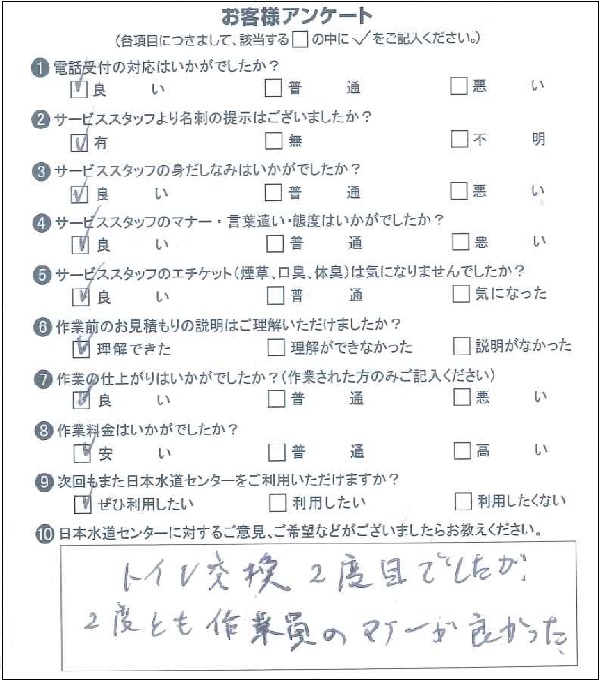 お客様アンケート
(各項目につきまして、該当する□の中に✓をご記入ください。)
❶ 電話受付の対応はいかがでしたか?
☑良い □普通 □悪い
❷ サービススタッフより名刺の提示はございましたか?
☑有 □無 □不明
❸ サービススタッフの身だしなみはいかがでしたか?
☑良い □普通 □悪い
❹ サービススタッフのマナー・言葉遣い・態度はいかがでしたか?
☑良い □普通 □悪い
❺ サービススタッフのエチケット(煙草、口臭、体臭)は気になりませんでしたか?
☑良い □普通 □気になった
❻ 作業前のお見積もりの説明はご理解いただけましたか?
☑理解できた □理解ができなかった □説明がなかった
❼ 作業の仕上がりはいかがでしたか?(作業された方のみご記入ください)
☑良い □普通 □悪い
❽ 作業料金はいかがでしたか?
☑安い □普通 □高い
❾ 次回もまた日本水道センターをご利用いただけますか?
☑ぜひ利用したい □利用したい □利用したくない
❿ 日本水道センターに対するご意見、ご希望などがございましたらお教えください。
トイレ交換2度目でしたが、
2度とも作業員のマナーが良かった。